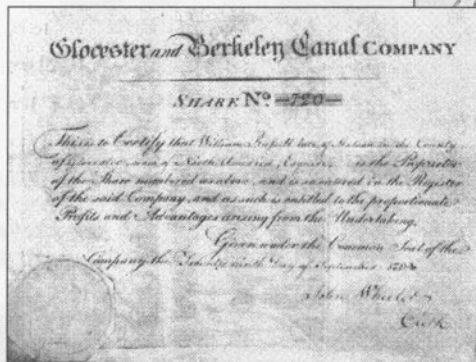 Glocester and Berkeley Canal COMPANY
SHARE Nº 720
This is to Certify that William Russell late of in the County
of now of North America Esquire is the Proprietor
of the Share numbered as above, and is so entered in the Register
of the said Company, and as such is entitled to the proportionate
Profits and Advantages arising from the Undertaking.
Given under the Common Seal of the
Company the Day of September
John Wheeler
Clerk